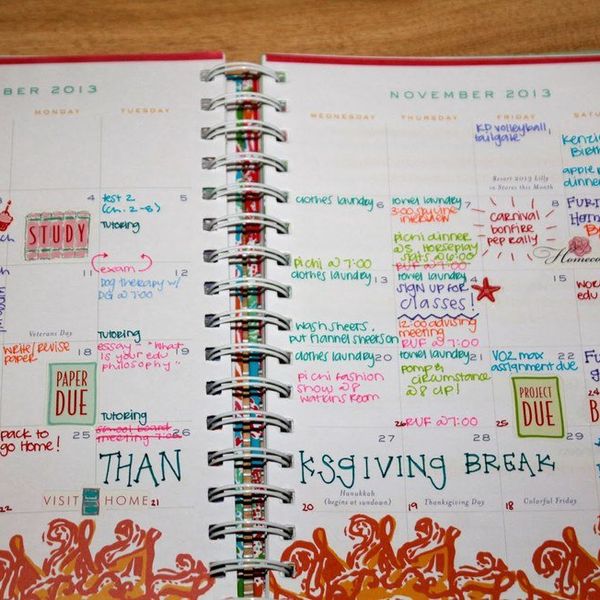 BER 2013
MONDAY
TUESDAY
4
test 2
(ch. 2-8)
STUDY
Tutoring
5
11
exam
Dog therapy w/
DG @ 7:00
12
Veterans Day
Tutoring
write/revise
paper
18
PAPER
DUE
essay - "what
is your edu
philosophy"
19
Tutoring
pack to
go Home!
25
school board
meeting 7:00
26
THAN
VISIT
HOME
22
21
NOVEMBER 2013
WEDNESDAY
THURSDAY
FRIDAY
SAT
KD volleyball,
tailgate
Resort 2013 Lilly
in Stores this Month
Kenzi
Birth
apple
dinner
clothes laundry
6
towel laundry
7
3:00 skyline
interview
pichi dinner
@ 5 Horseplay
skits @ 6:00
RUF @ 7:00
8
carnival
bonfire
pep rally
FURI
Hom
Homeco
pichi @ 7:00
clothes laundry
13
towel laundry
14
SIGN UP FOR
classes!
15
WOR
edu
wash sheets,
put flannel sheets on
12:00 advising
meeting
RUF @ 7:00
clothes laundry
20
pichi fashion
show @ 8
Watkins Room
towel laundry
21
pomp &
circumstance
@ 8 CIP!
RUF @ 7:00
VO2 max
assignment due
22
PROJECT
DUE
FURI
26
25
24
27
28
29
KSGIVING BREAK
Hanukkah
(begins at sundown)
Thanksgiving Day
Colorful Friday
20
19
18